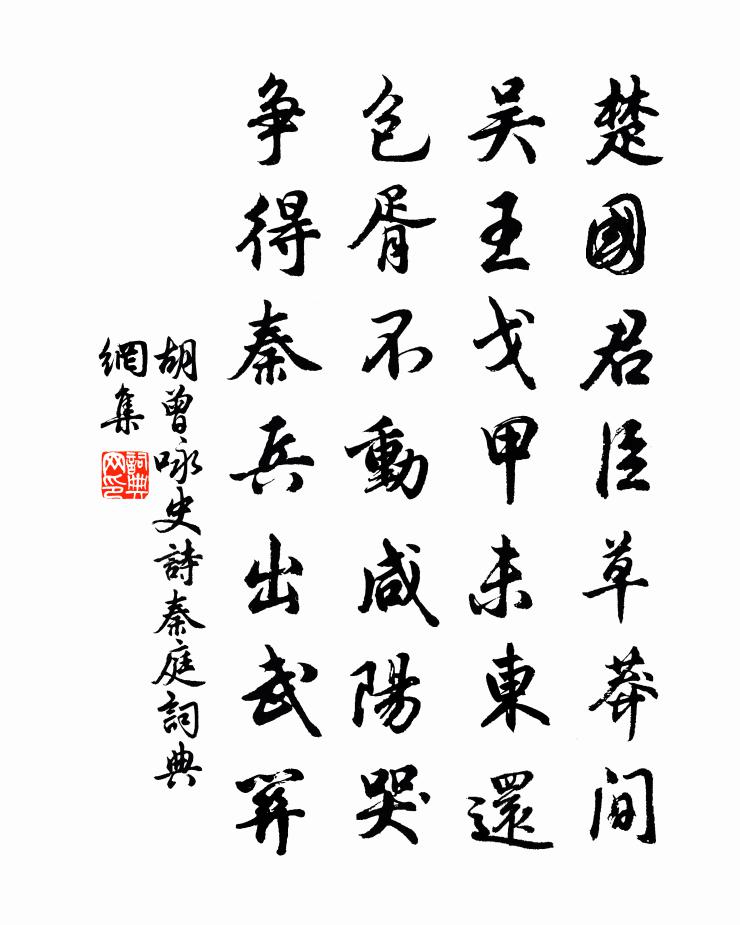 楚國君臣草莽間
吴王戈甲未東還
包胥不動咸陽哭
争得秦兵出武關
胡曾咏史詩秦庭詞典
網集
詞典网印